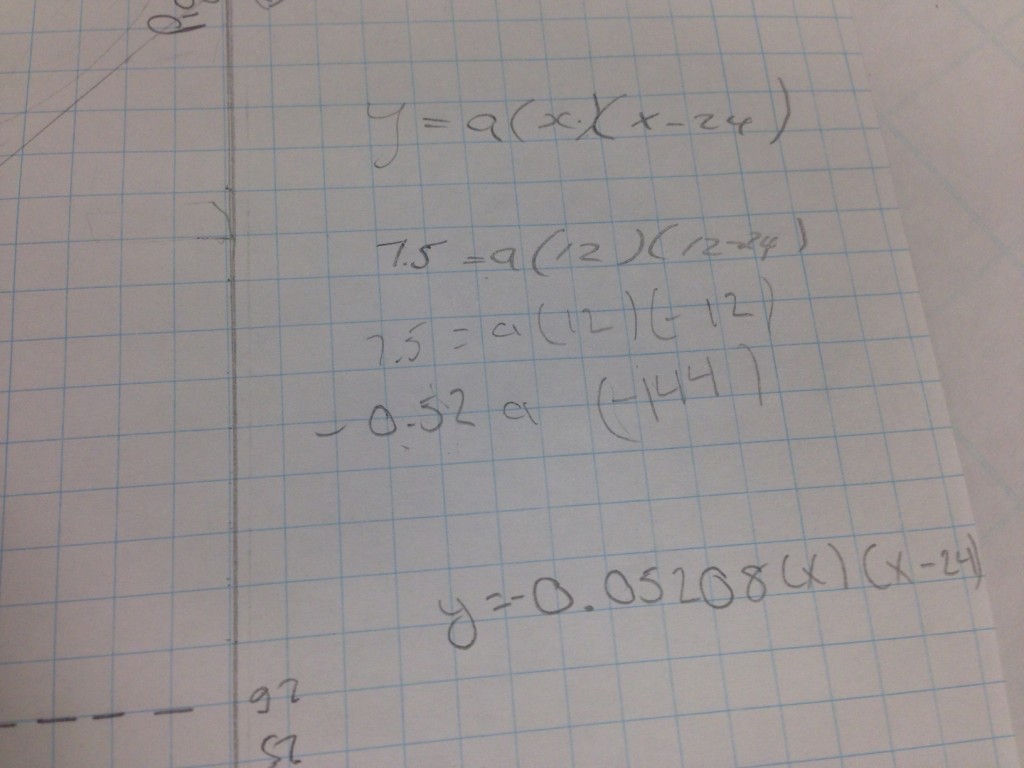 y = a(x)(x-24)
7.5 = a(12)(12-24)
7.5 = a(12)(-12)
-0.52 a (-144)
y=-0.05208(x)(x-24)